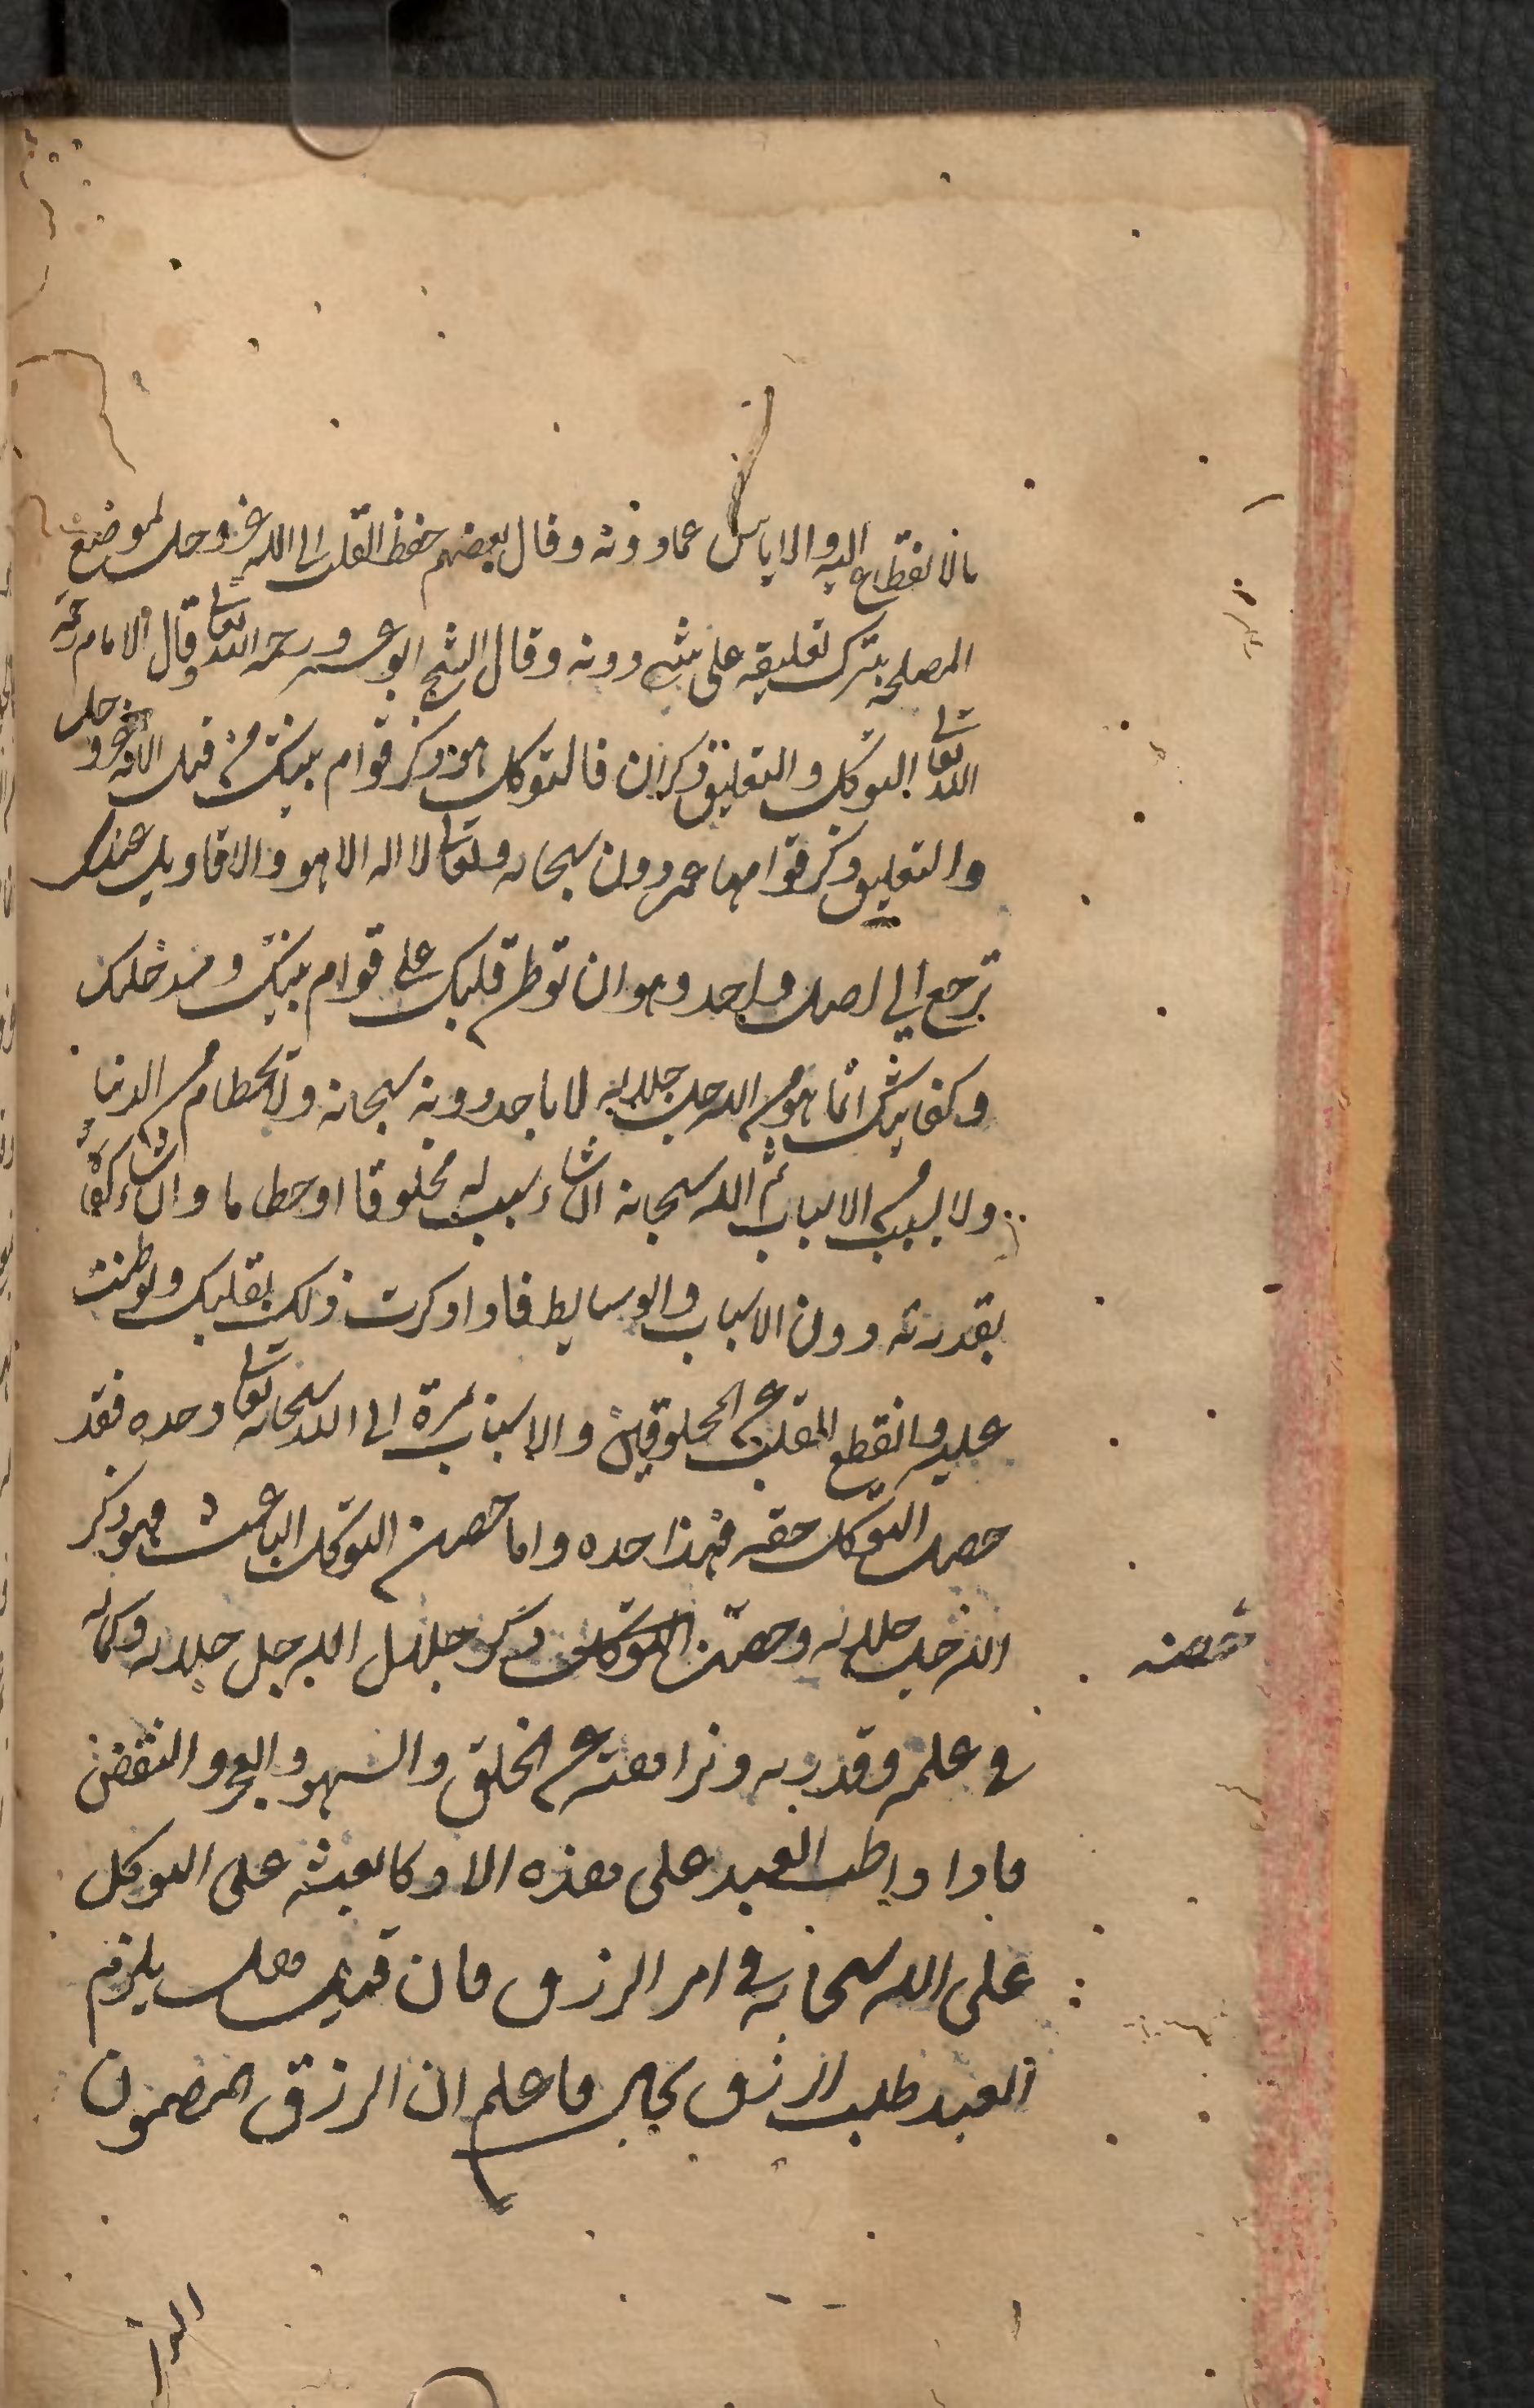 بالانقطاع اليه والاياس عما دونه وقال بعضهم حفظ القلب الى الله عز وجل لموضع
المصلحة بترك تعليقه على شيء دونه وقال الشيخ ابو عمرو رحمه الله تعالى وقال الامام رحمه
الله تعالى التوكل والتعليق ذكران فالتوكل هو ذكر قوام بينك من قبل الله عز وجل
والتعليق ذكر قوامها عمن دون سبحانه وتعالى لا اله الا هو والاقاويل عندي
ترجع الى اصل واحد وهو ان توطن قلبك على قوام بينك وسد خللك
وكفايتك انما هو من الله جل جلاله لا باحد دونه سبحانه ولا بحطام من الدنيا
ولا بسبب من الاسباب ثم الله سبحانه ان شاء سبب له مخلوقا او حطاما وان شاء كفا
بقدرته دون الاسباب والوسايط فاذا ذكرت ذلك بقلبك وتوطنت
عليه وانقطع القلب عن المخلوقين والاسباب بمرة الى الله سبحانه وتعالى وحده فقد
حصل التوكل حقه فهذا حده واما حصن التوكل الباعث فهو ذكر
الله جل جلاله وحصن التوكل ذكر جلال الله جل جلاله وكماله
حصنه
في علمه وقدرته ونزاهته عن الخلق والسهو والعجز والنقض
فاذا واظب العبد على هذه الاذكار بعثه على التوكل
على الله سبحانه في امر الرزق فان قيل هل يلزم
العبد طلب الرزق بحال فاعلم ان الرزق المضمون
الذي